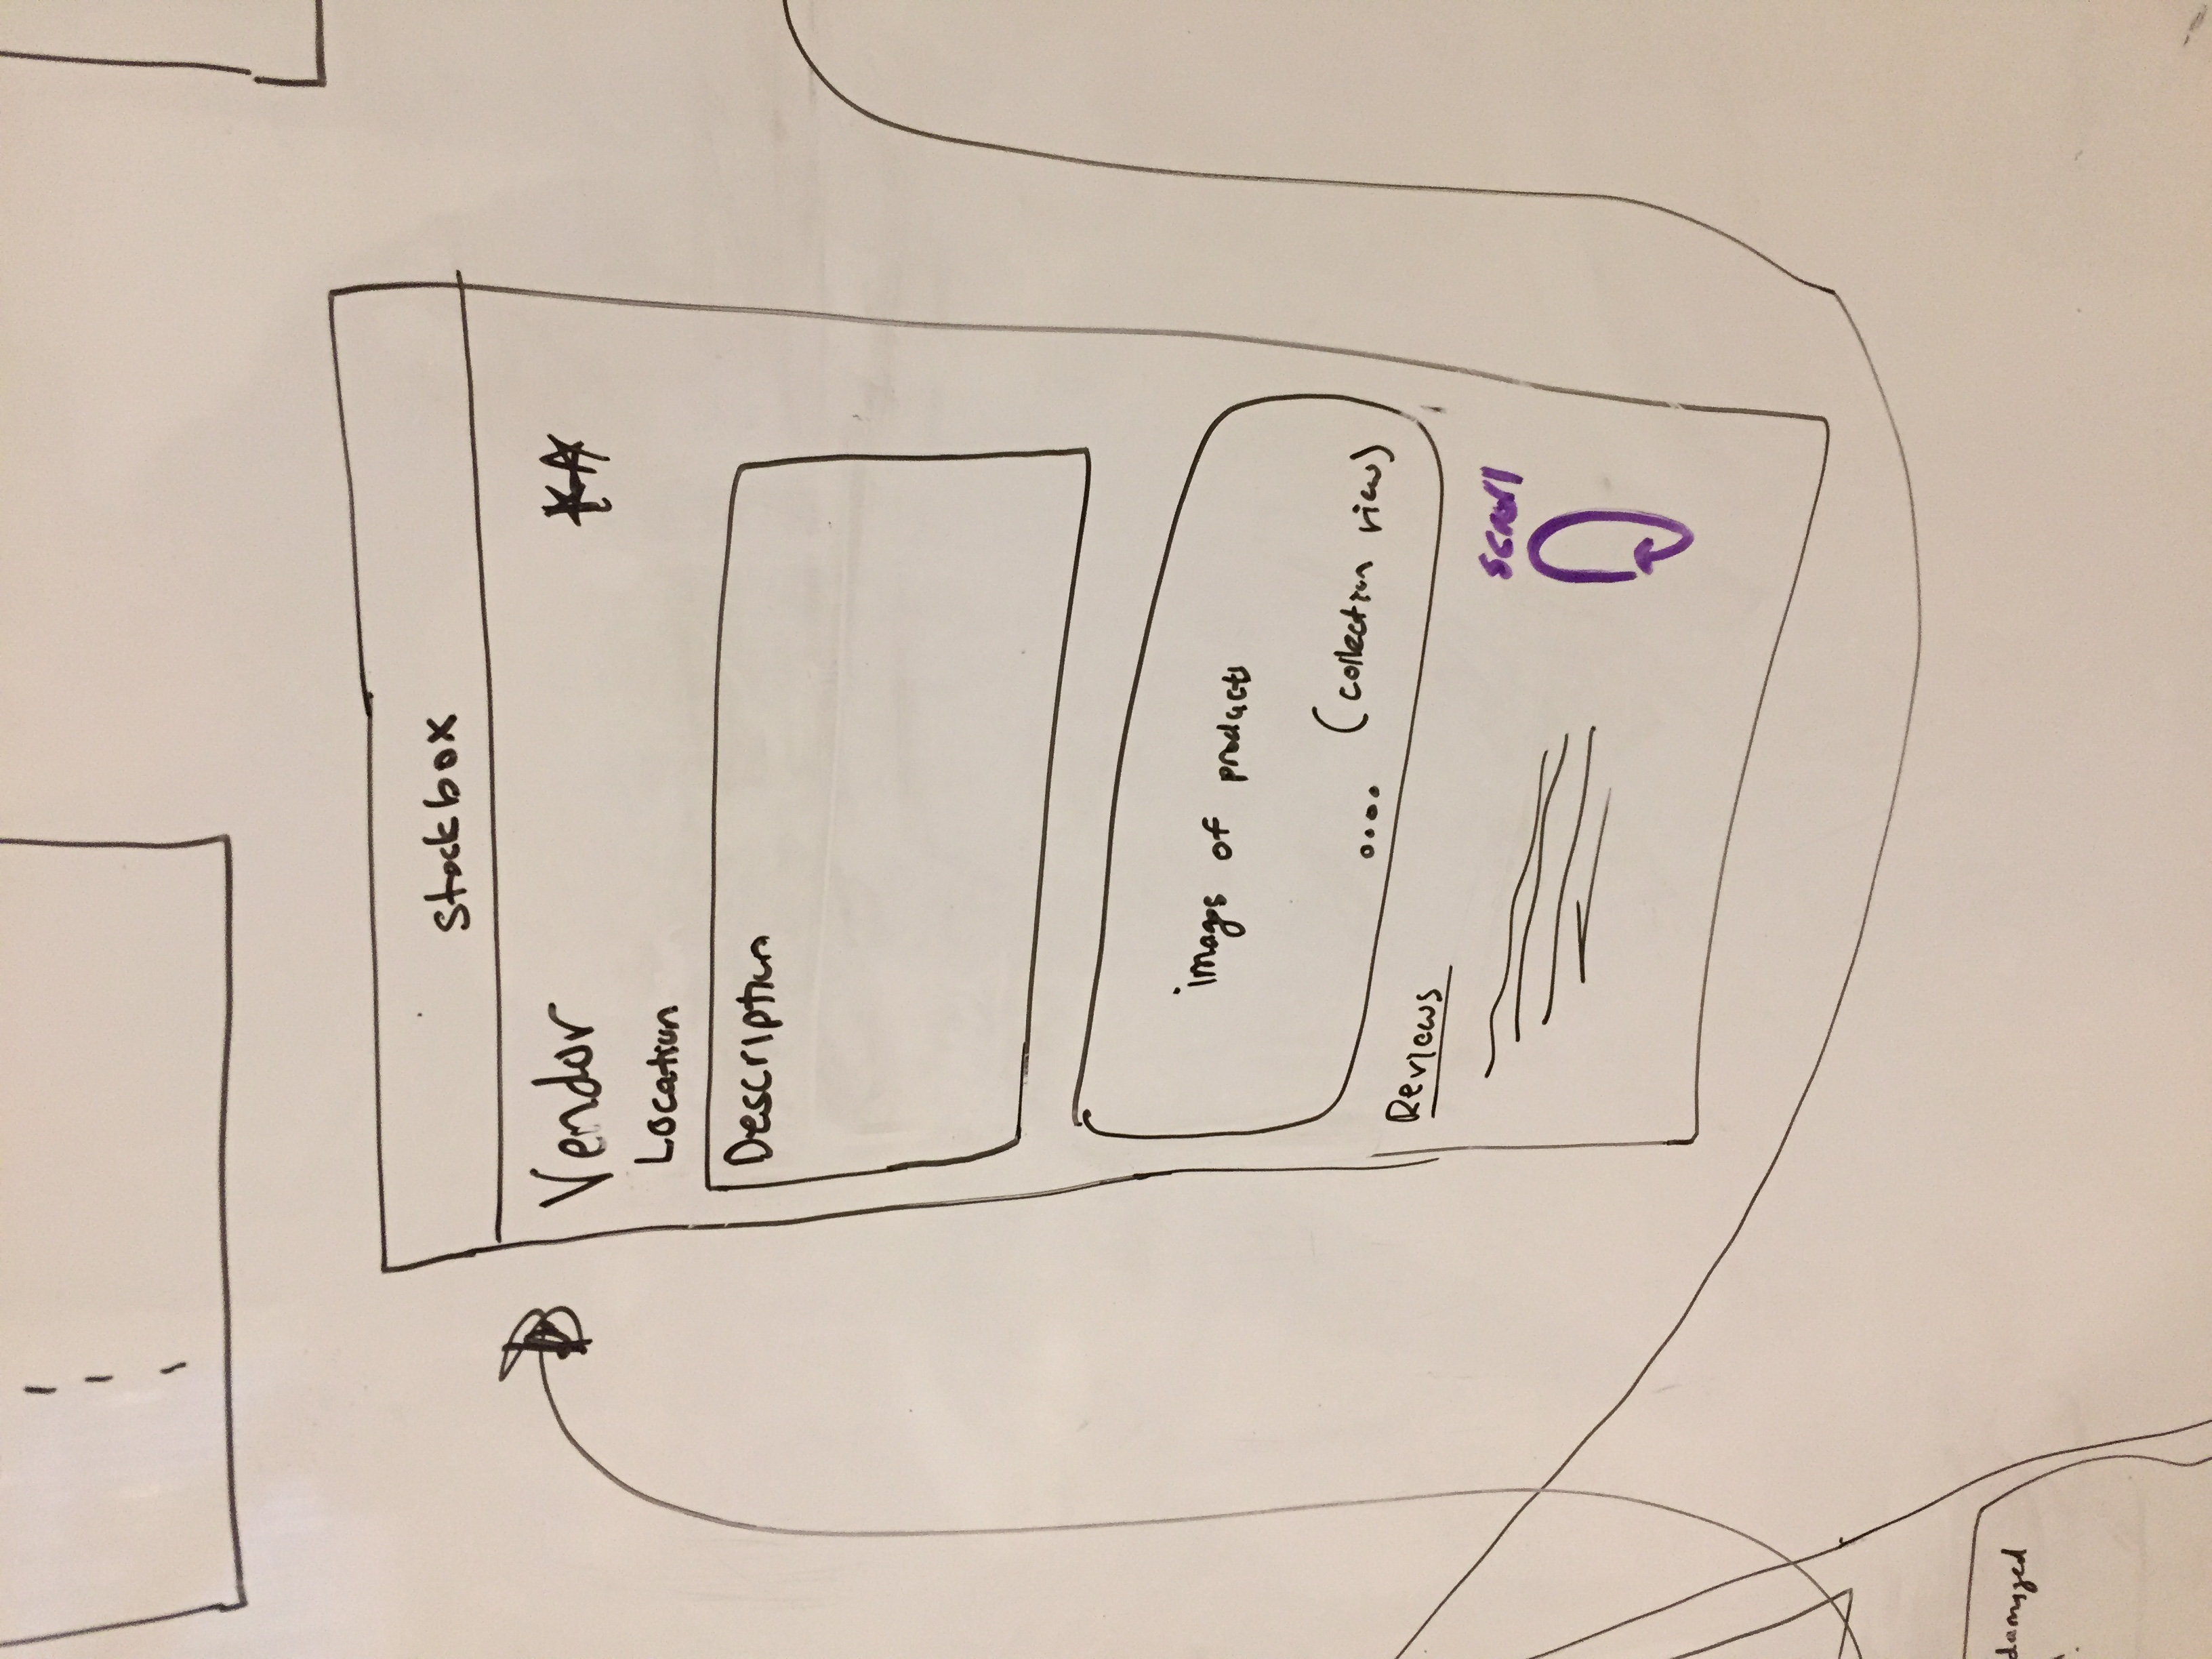 stockbox
Vendor
Location
Description
images of products
.... (collection view)
Reviews
scroll
damaged